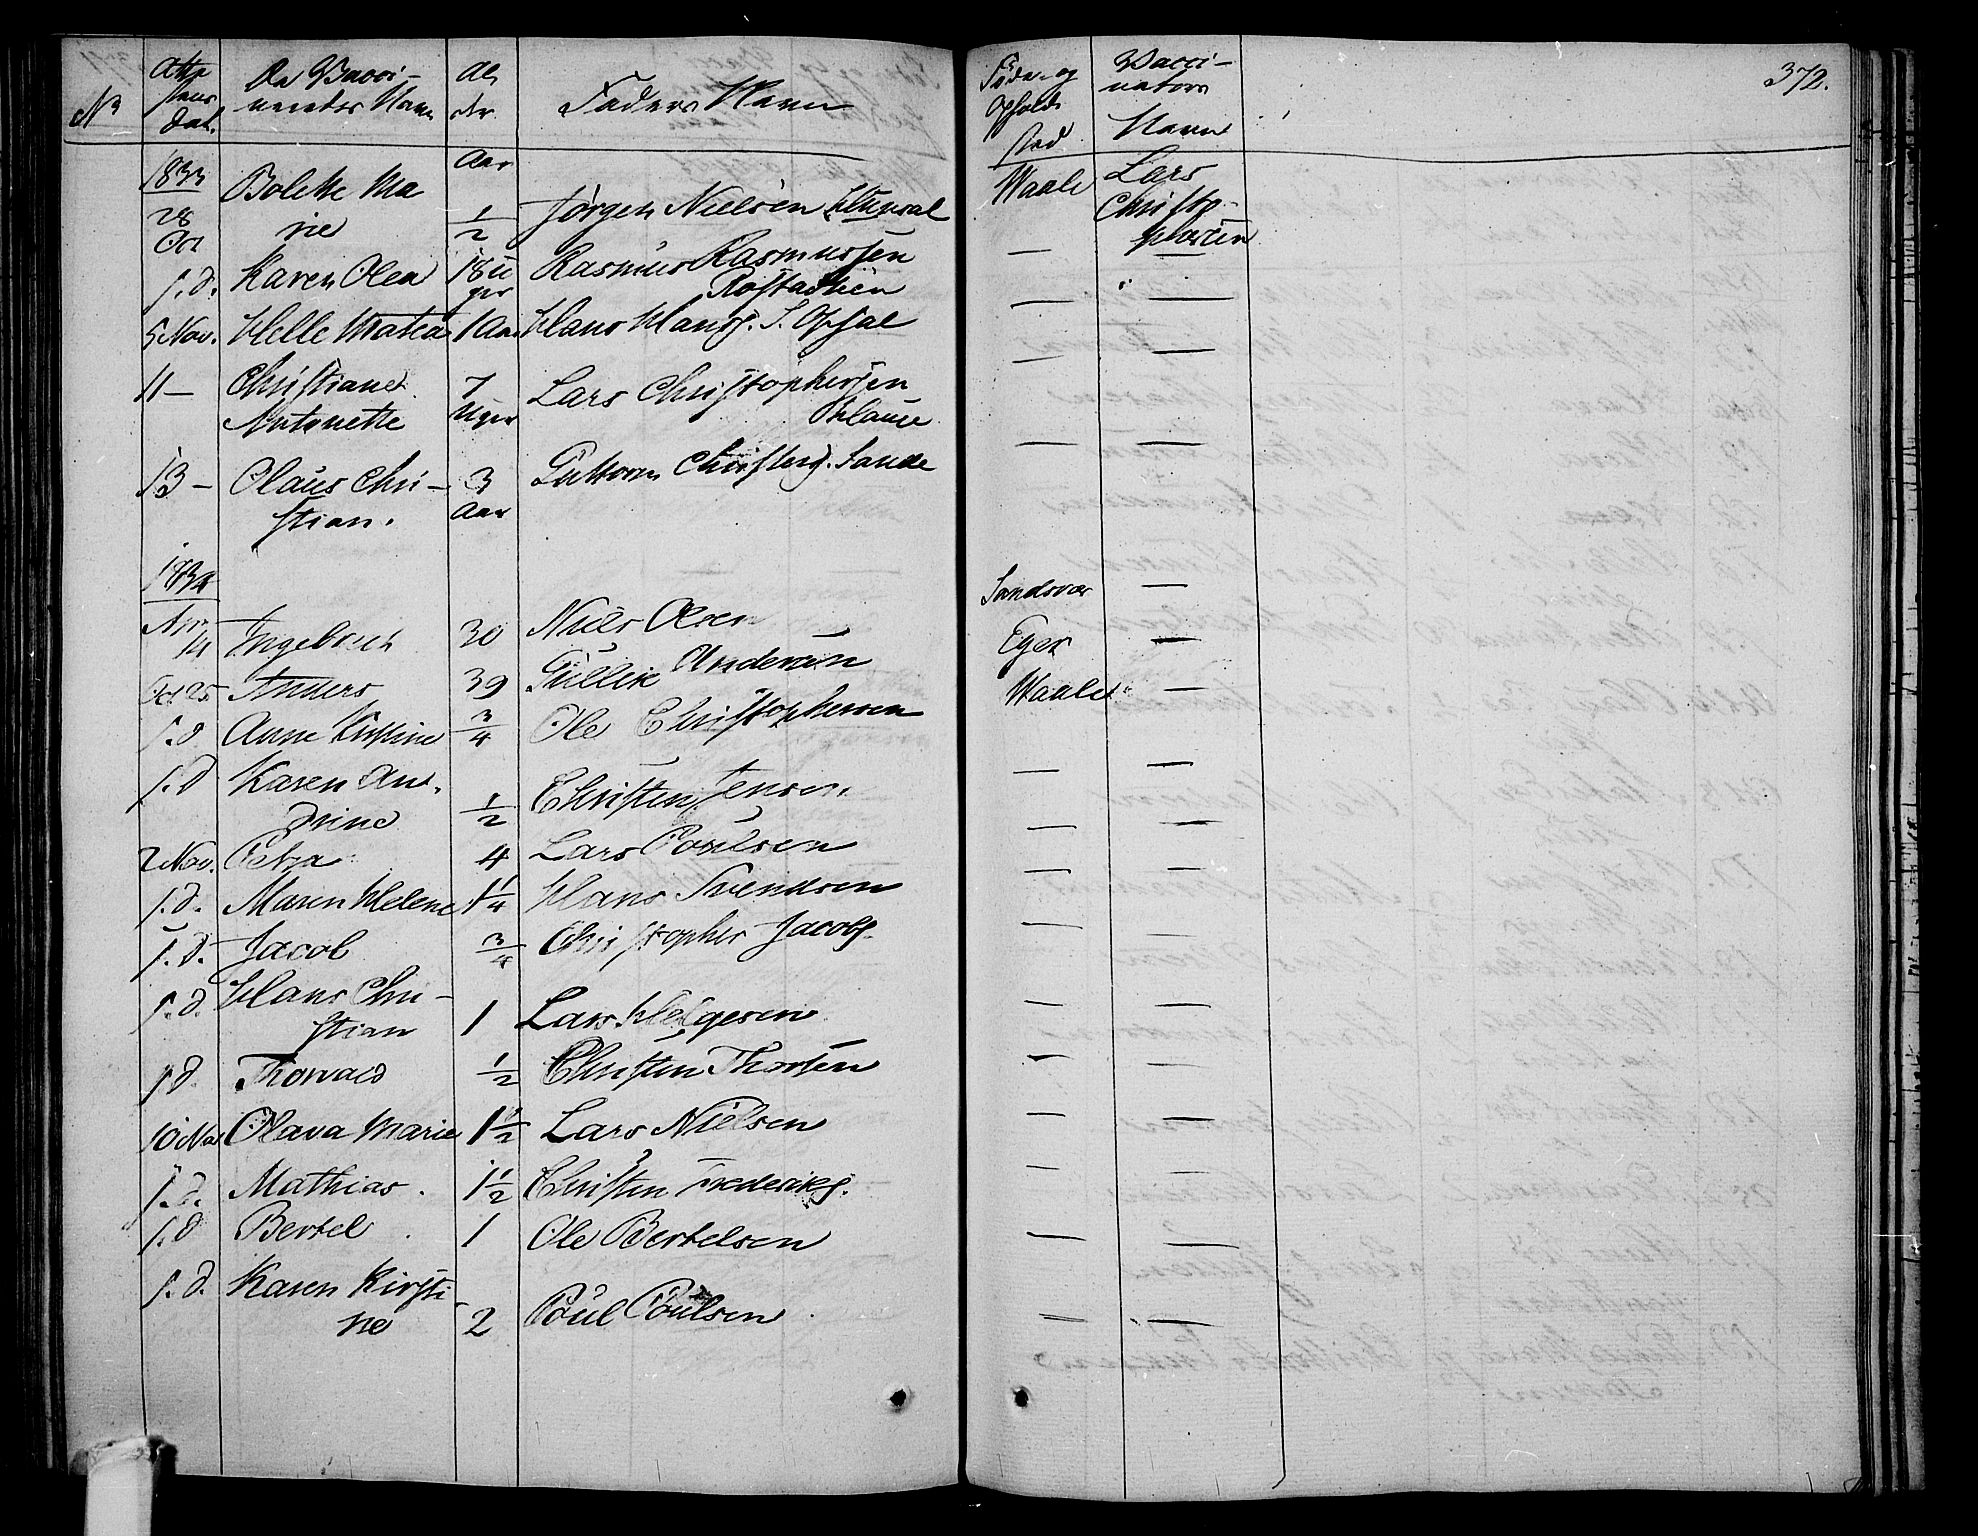 372.
No
Atte
stens
Dat.
De Vacci-
neredes Navn
Al
der
Faders Navn
Føde- og
Opholds
sted
Vacci-
nators
Navn
1833
28
Oct
Bolette Ma
rie
Aar
1/2
Jørgen Nielsen
Waale
Lars
Christop-
hersen
s. d. Karen Olea 18 U
ger
Rasmus Rasmussen
— —
5 Nov. Helle Matea 1 Aar Hans Hans. S. Opsal — —
11 — Christiane
Antonette
7
Uger
Lars Christophersen
— —
13 — Olaus Chri-
stian.
3
Aar
Guttorm Christens. Sande — —
1834
Apr.
14 Ingeborg 30 Niels Olsen Sandsvær —
Oct 25 Anders 39 Gullik Andersen Eger —
s. d Anne Kirstine 3/4 Ole Christophersen Waale —
s. d Karen An-
drine
1/2 Christen Jensen — —
2 Nov. Petra 4 Lars Poulsen — —
s. d. Maren Helene 1 1/4 Hans Svendsen — —
s. d. Jacob 3/4 Christopher Jacobs. — —
s. d. Hans Chri-
stian
1 Lars Helgesen — —
s d. Thorvald 1/2 Christen Thorsen — —
10 Nov Olava Marie 1 1/2 Lars Nielsen — —
s. d. Mathias. 1 1/2 Christen Frederiks. — —
s. d Bertel 1 Ole Bertelsen — —
s. d. Karen Kirsti-
ne
2 Poul Poulsen — —